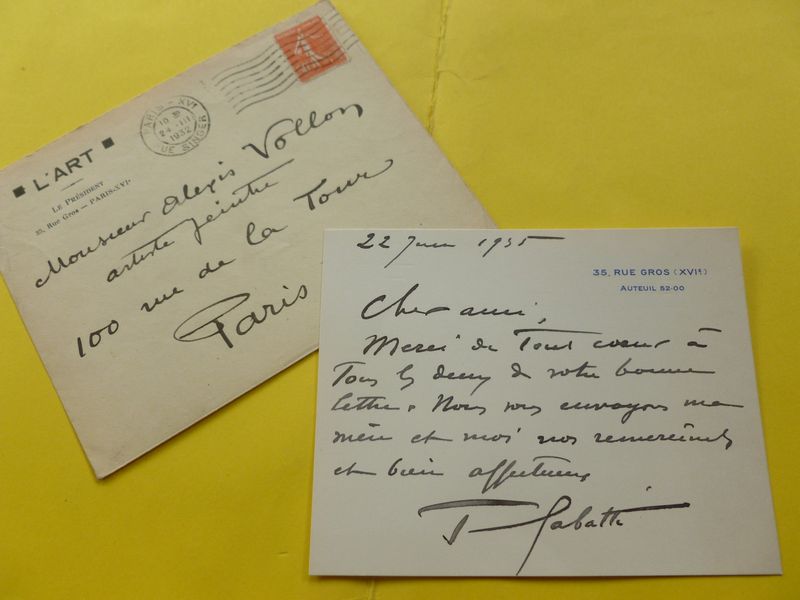 L'ART
LE PRÉSIDENT
35, RUE GROS — PARIS-XVIe
PARIS - XVI
24 - III
1932
RUE SINGER
Monsieur Alexis Vollon
artiste peintre
100 rue de la Tour
Paris
22 Juin 1935
35, RUE GROS (XVIe)
AUTEUIL 52-00
Cher ami,
Merci de Tout coeur à
Tous les deux de votre bonne
lettre. Nous vous envoyons ma
mère et moi nos remerciements
et bien affectueux